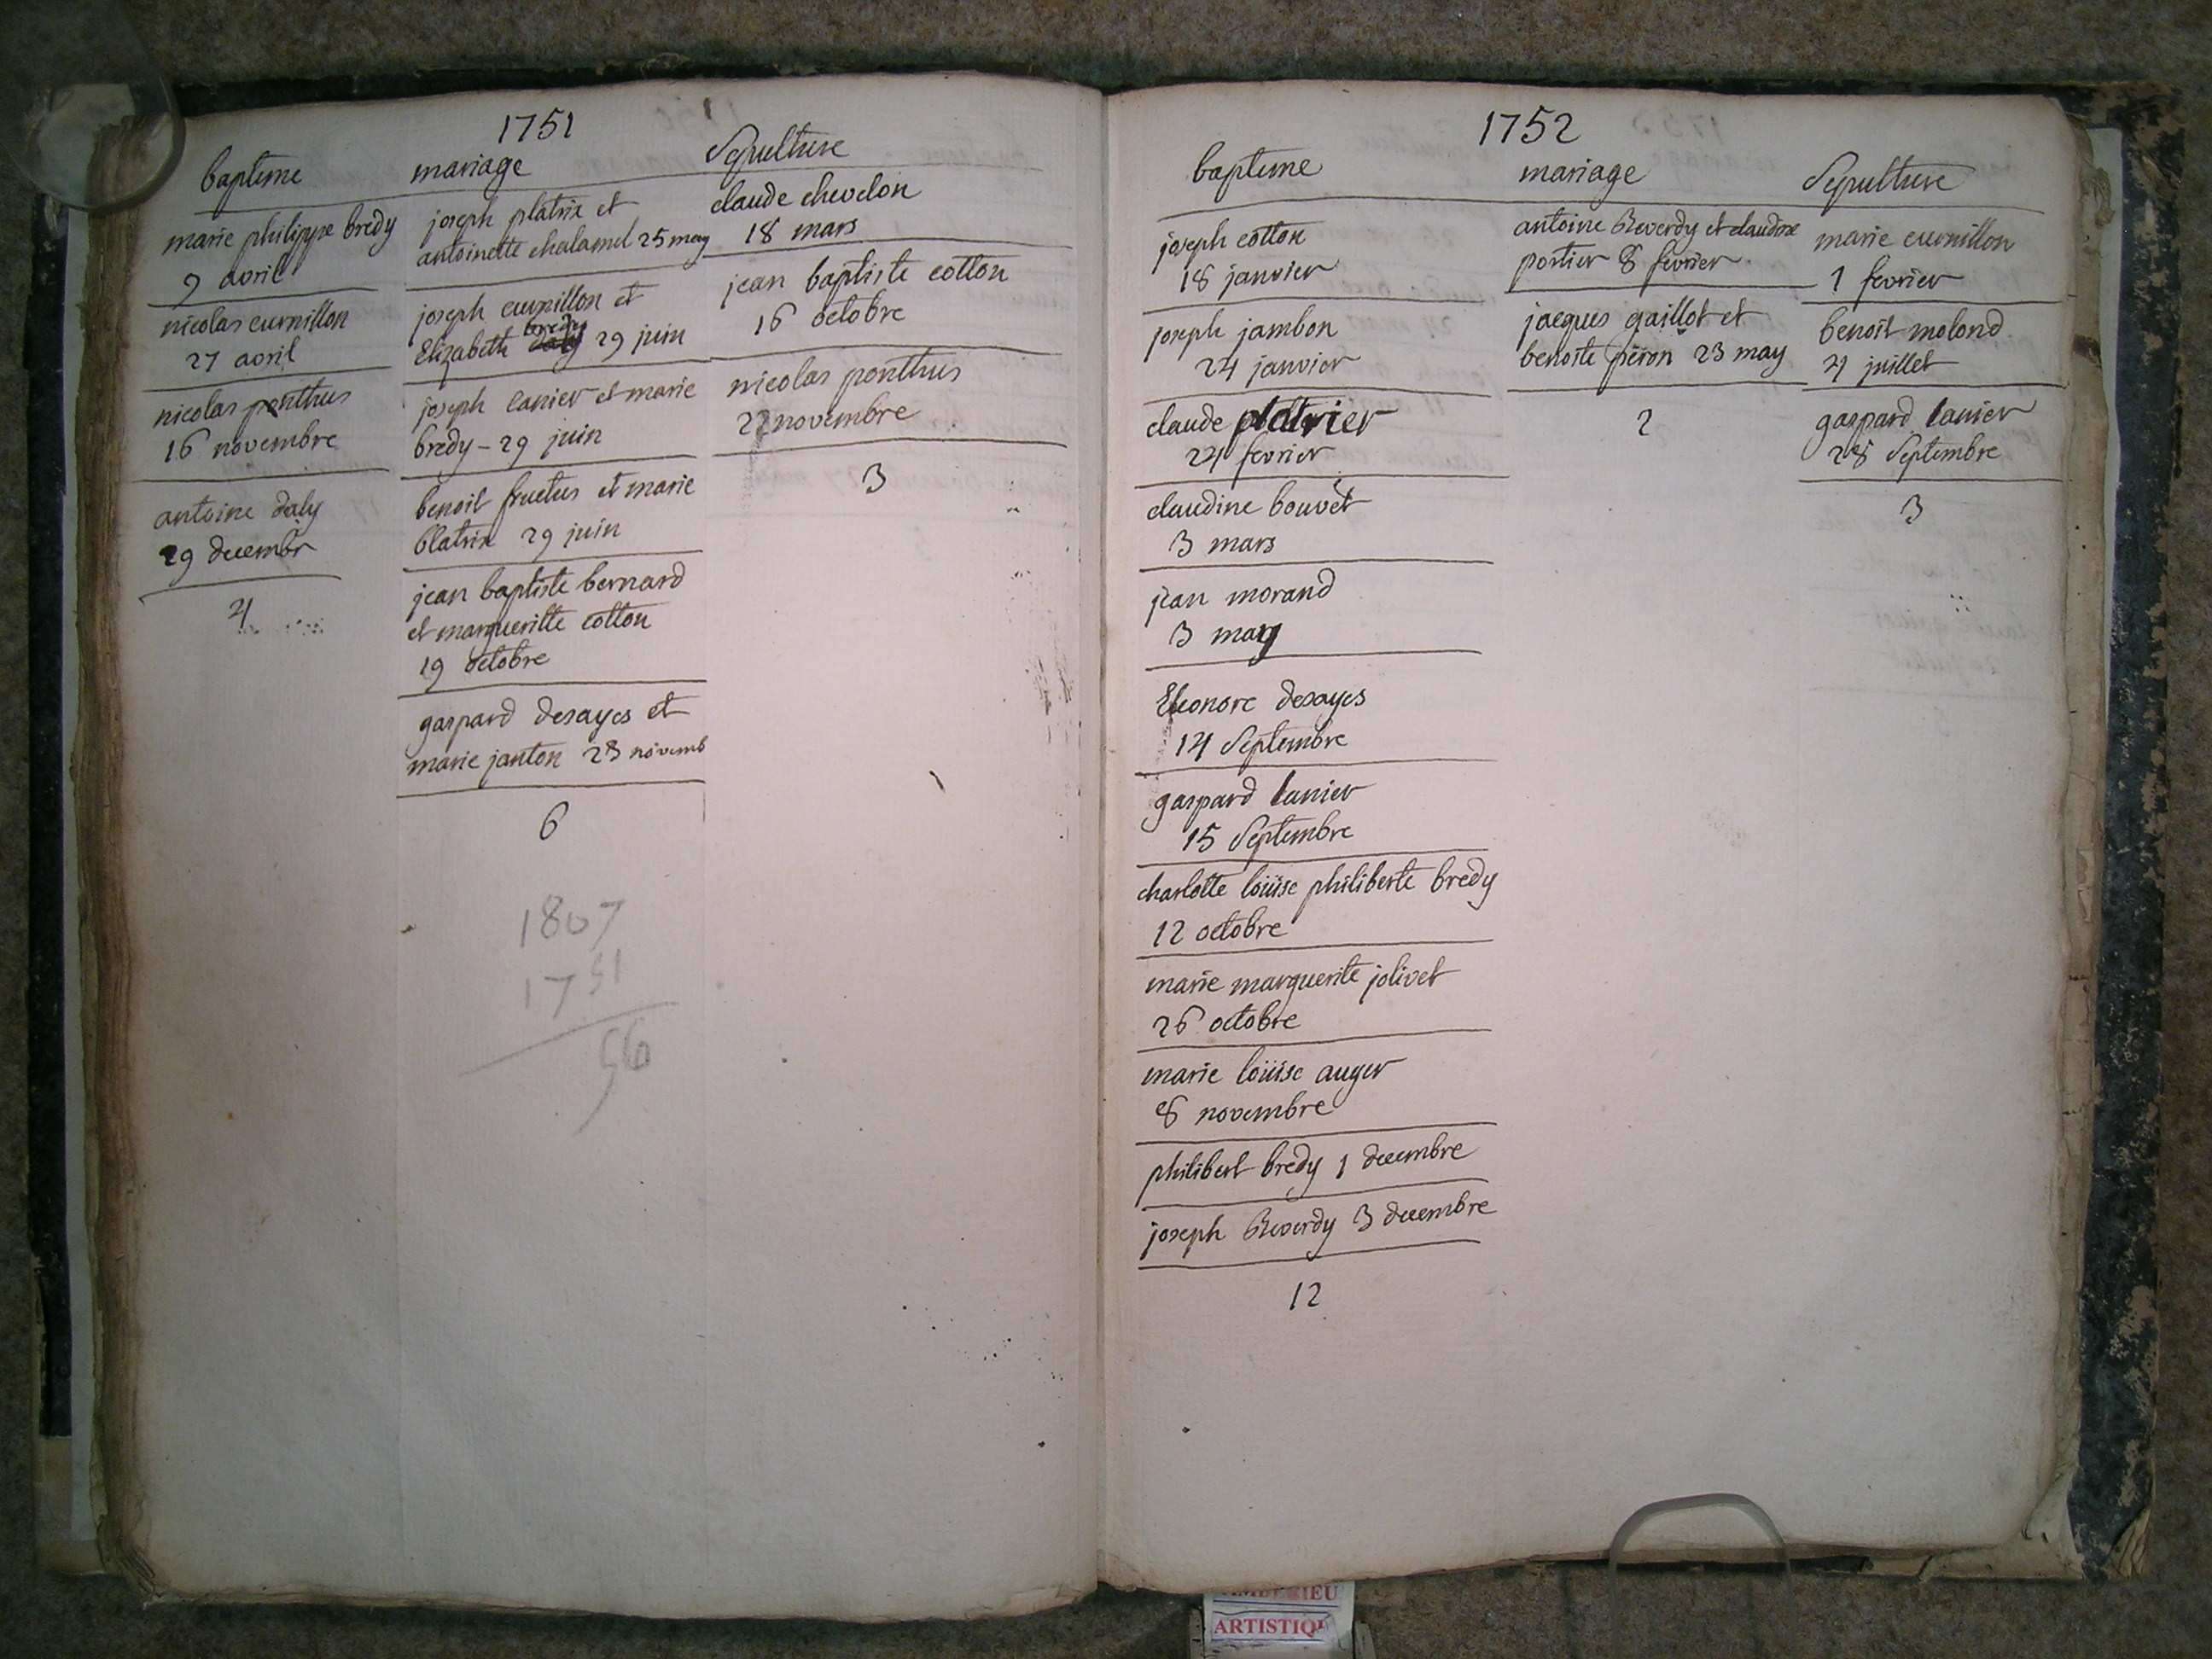 1751
bapteme
marie philippe bredy
9 avril
nicolas curnillon
27 avril
nicolas ponthus
16 novembre
antoine daly
29 decembr
4
mariage
joseph platrix et
antoinette chalamel 25 may
joseph curnillon et
bredy
Elizabeth daly 29 juin
joseph lanier et marie
bredy - 29 juin
benoit fructus et marie
Platrix 29 juin
jean baptiste bernard
et margueritte cotton
19 octobre
gaspard desayes et
marie janton 23 novemb
6
1807
1751
56
Sepulture
claude chevelon
18 mars
jean baptiste cotton
16 octobre
nicolas ponthus
22 novembre
3
1752
bapteme
joseph cotton
18 janvier
joseph jambon
24 janvier
claude platrier
24 fevrier
claudine bouvet
3 mars
jean morand
3 may
Eleonore desayes
14 Septembre
gaspard lanier
15 Septembre
charlotte loüise philiberte bredy
12 octobre
marie marguerite jolivet
26 octobre
marie loüise auger
8 novembre
philibert bredy 1 decembre
joseph Reverdy 3 decembre
12
mariage
antoine Reverdy et claudine
portier 8 fevrier
jacques gaillot et
benoite peron 23 may
2
Sepulture
marie curnillon
1 fevrier
benoit molond
4 juillet
gaspard lanier
28 Septembre
3
ARTISTIQ